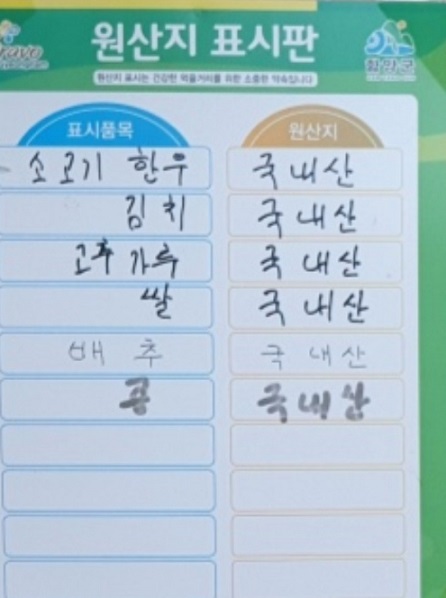 원산지 표시판
원산지 표시는 건강한 먹을거리를 위한 소중한 약속입니다
함양군
표시품목 원산지
소고기 한우 국내산
김치 국내산
고추가루 국내산
쌀 국내산
배추 국내산
콩 국내산